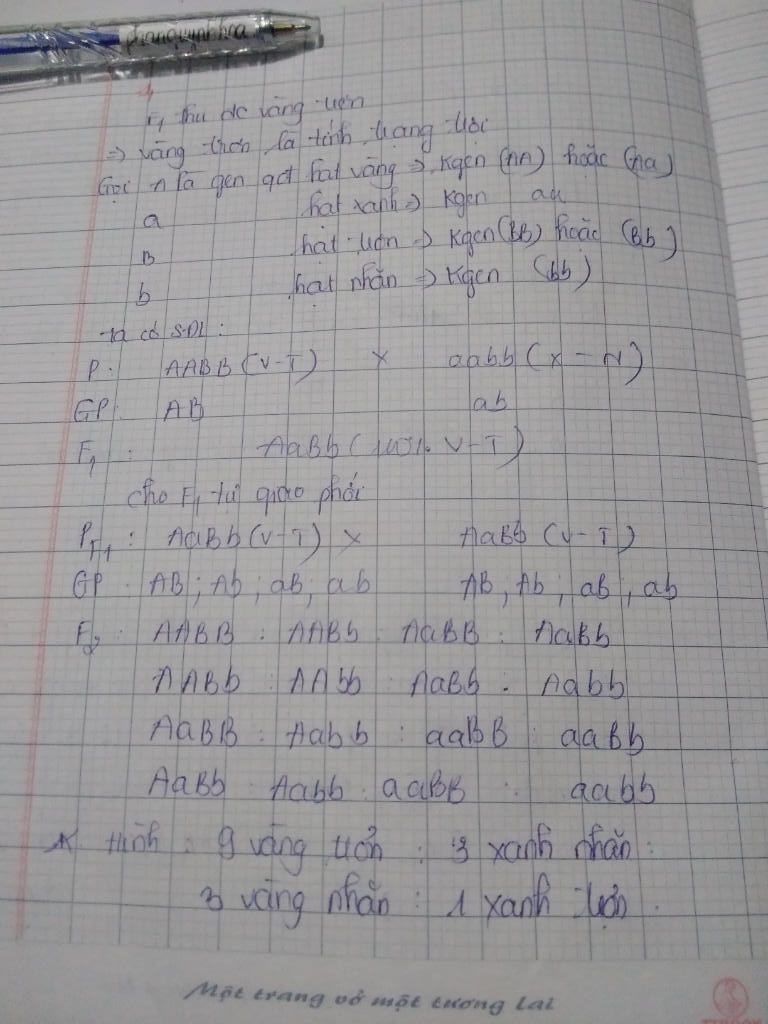 phanquynhhoa
F₁ thu đc vàng trơn
=> vàng trơn là tính trạng trội
Gọi A là gen qđ hạt vàng => Kgen (AA) hoặc (Aa)
a hạt xanh => Kgen aa
B hạt trơn => Kgen (BB) hoặc (Bb)
b hạt nhăn => Kgen (bb)
ta có SĐL:
P: AABB (V-T) x aabb (X-N)
GP: AB ab
F₁: AaBb (100% V-T)
Cho F₁ tự giao phối
P F₁: AaBb (V-T) x AaBb (V-T)
GP: AB; Ab; aB; ab AB, Ab; aB; ab
F₂: AABB : AABb : AaBB : AaBb
AABb : AAbb : AaBb : Aabb
AaBB : Aabb : aaBB : aaBb
AaBb : Aabb : aaBB : aabb
K hình : 9 vàng trơn : 3 xanh nhăn :
3 vàng nhăn : 1 xanh trơn.
Một trang vở một tương lai